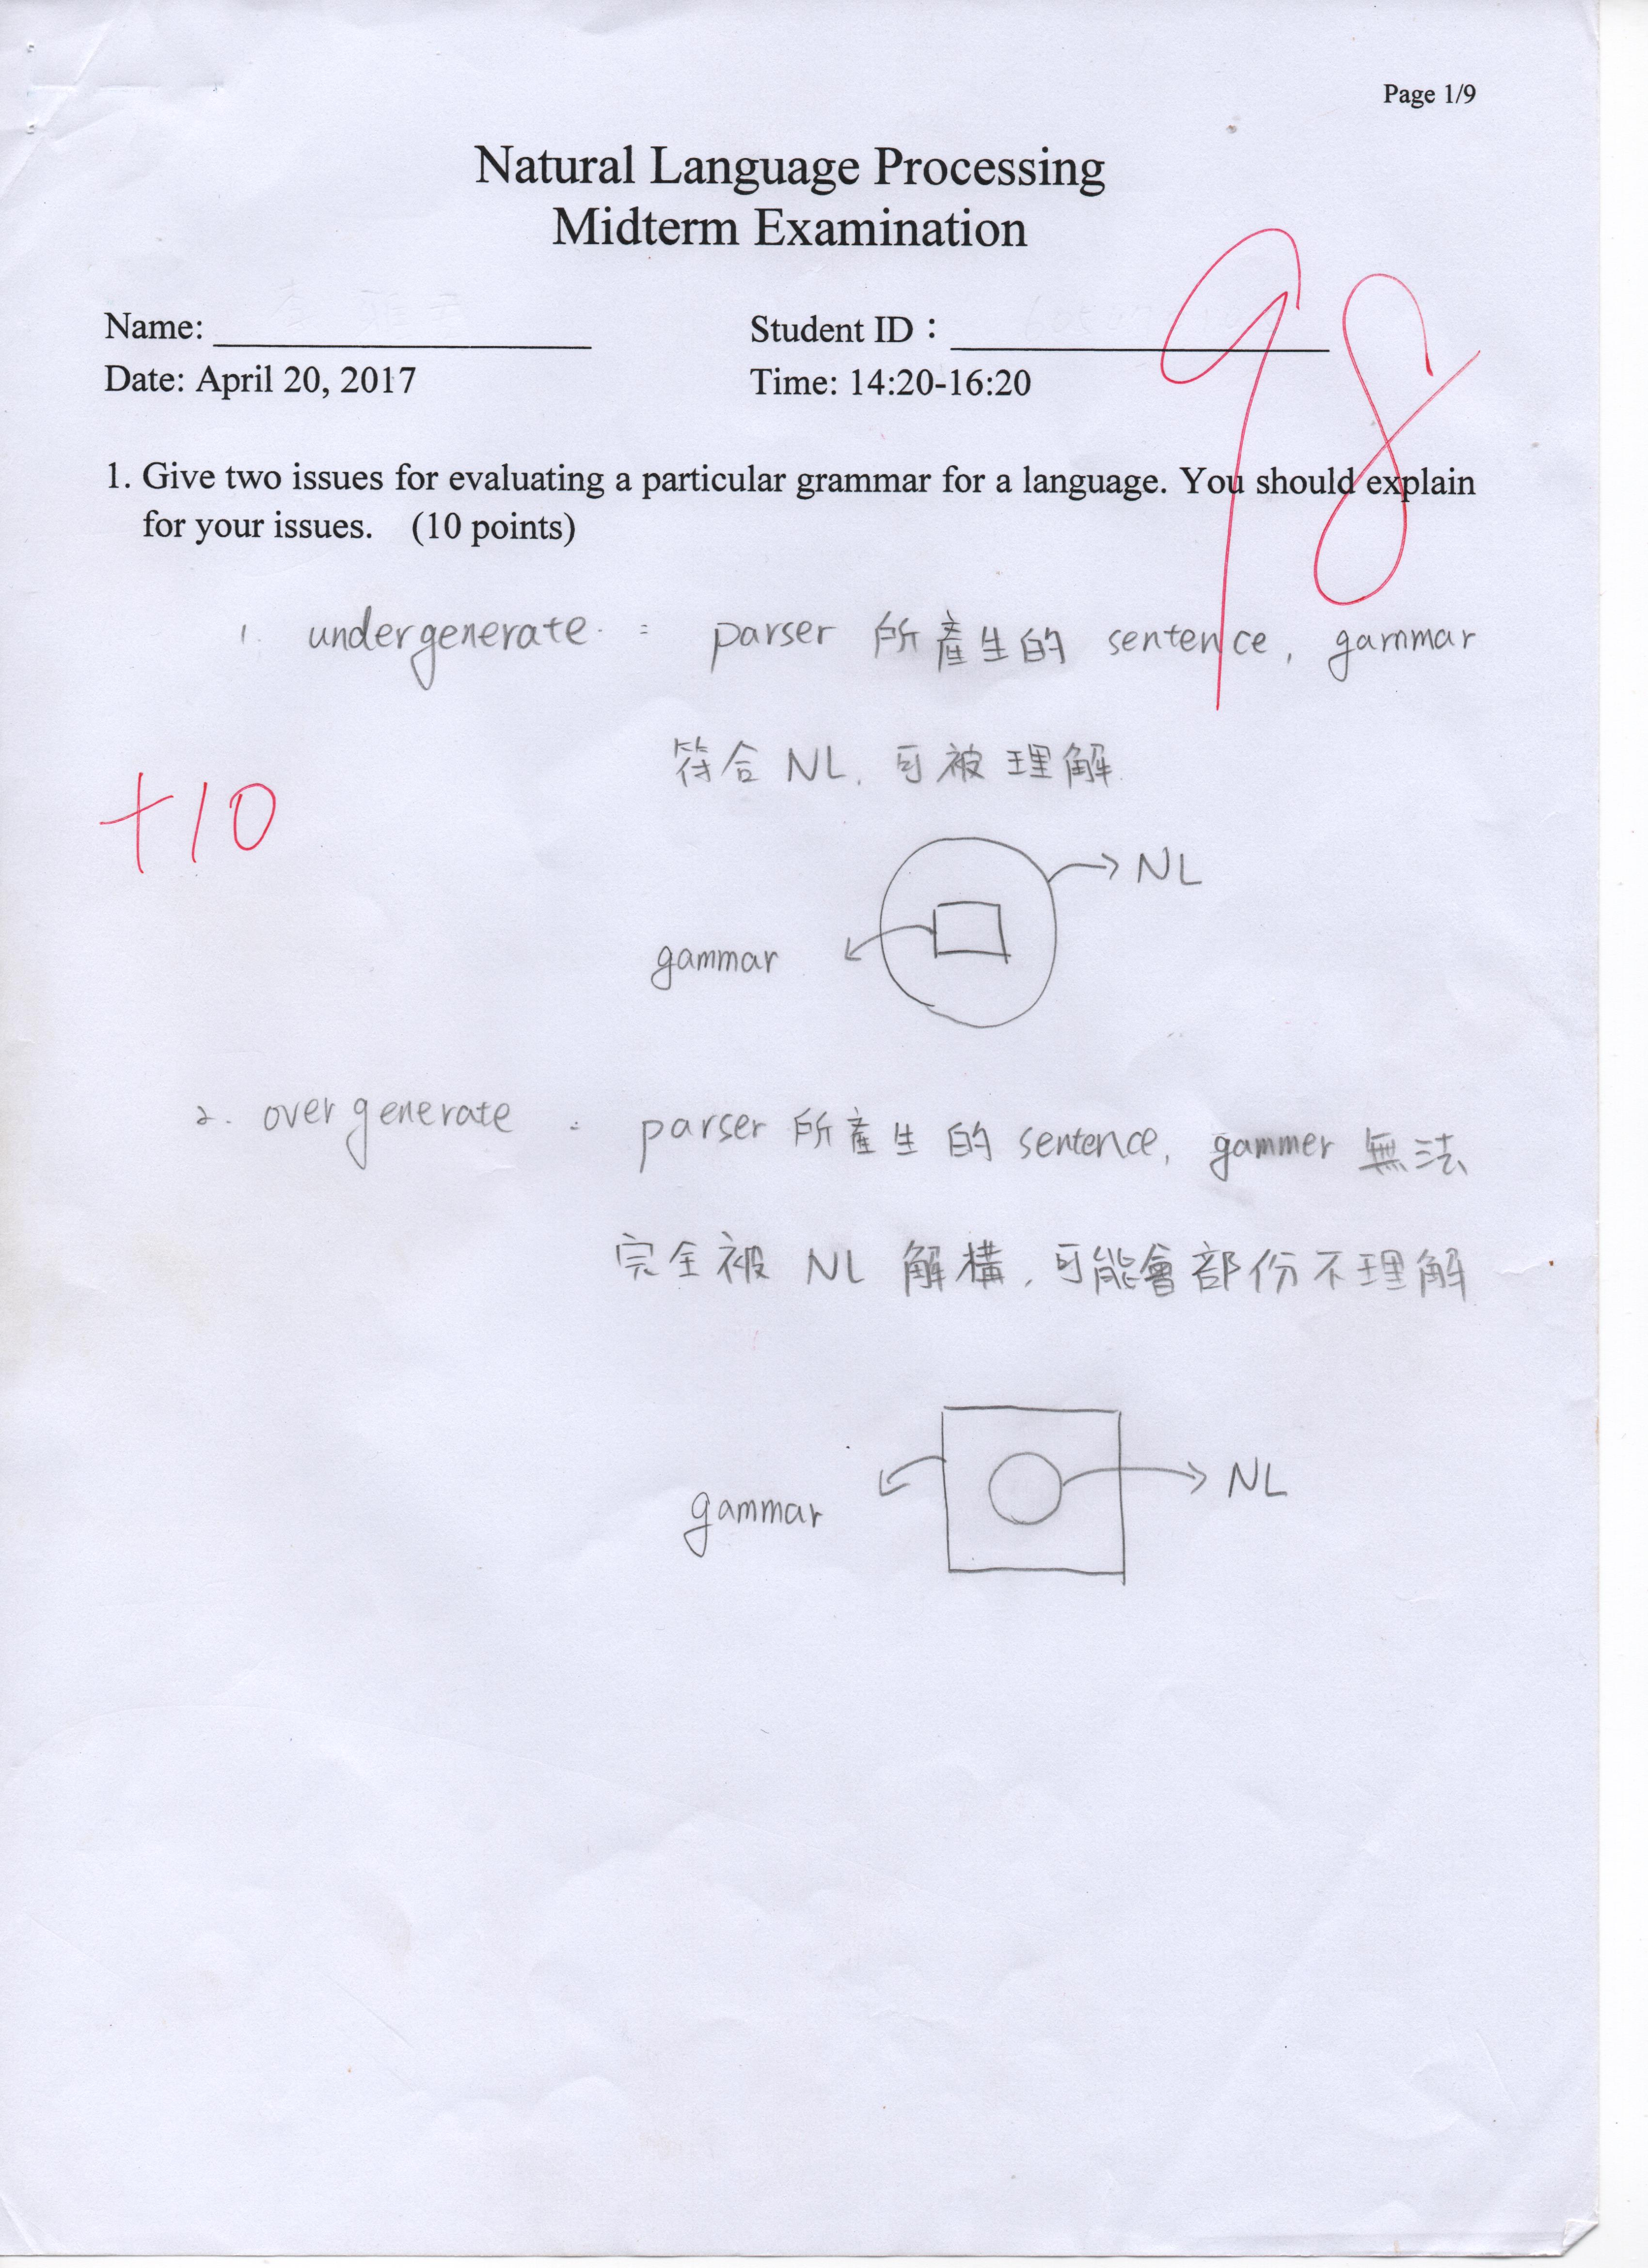 Page 1/9
Natural Language Processing
Midterm Examination
Name: Student ID：
Date: April 20, 2017 Time: 14:20-16:20
98
1. Give two issues for evaluating a particular grammar for a language. You should explain
for your issues. (10 points)
1. undergenerate : parser 所產生的 sentence, gammar
符合 NL, 可被理解
+10
NL
gammar
2. overgenerate : parser 所產生的 sentence, gammer 無法
完全被 NL 解構, 可能會部份不理解
NL
gammar